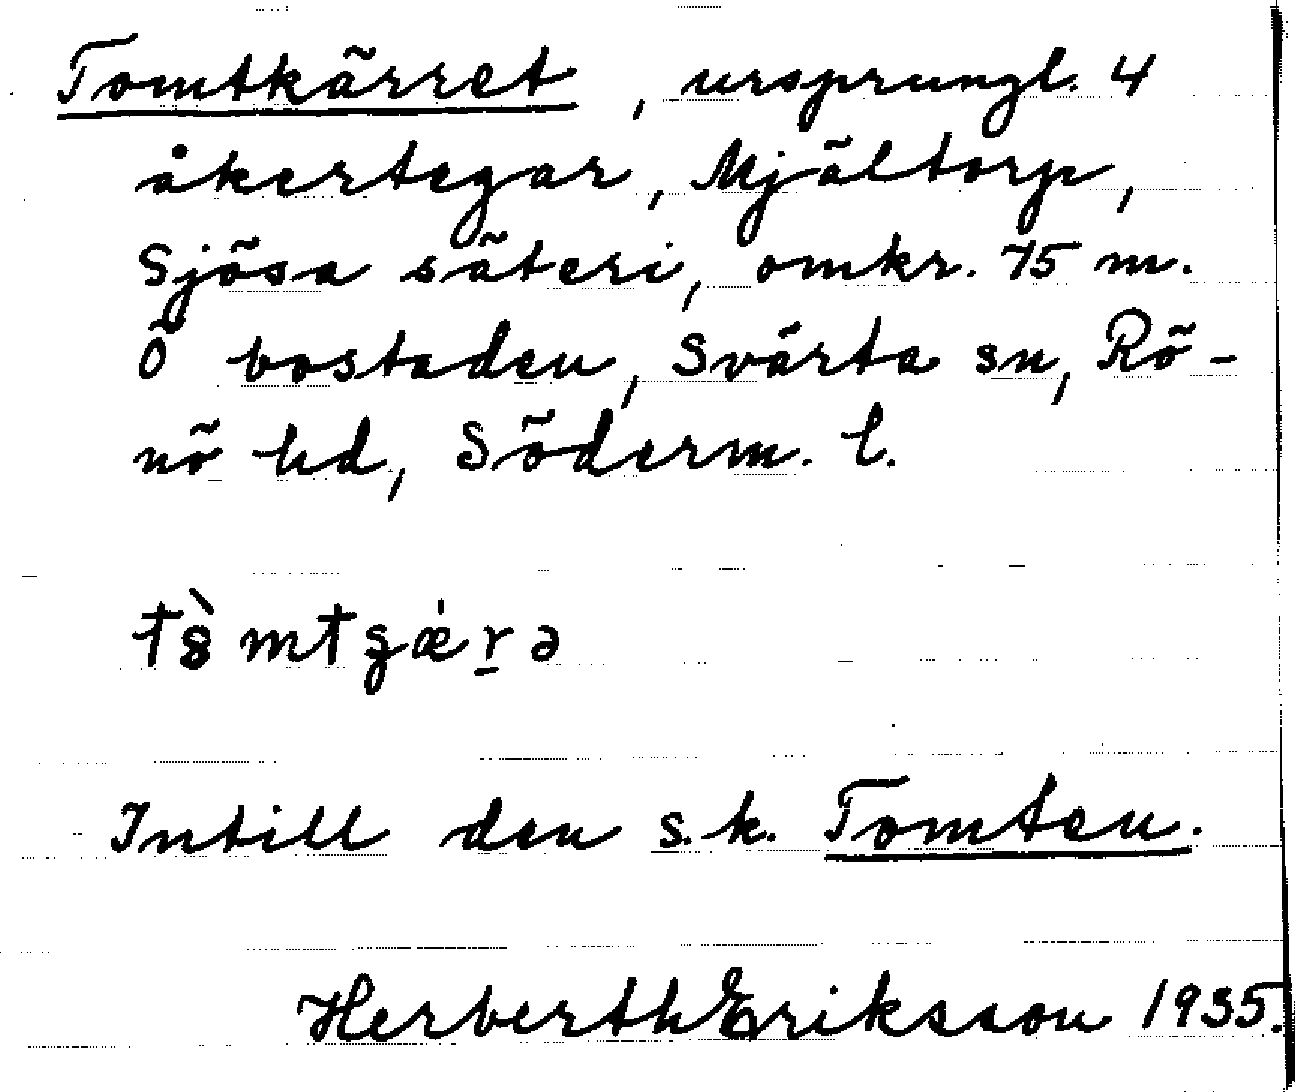 Tomtkärret, ursprungl. 4
åkertegar, Mjältorp,
Sjösa säteri, omkr. 75 m.
Ö bostaden, Svärta sn, Rö-
nö hd, Söderm. l.
Intill den s.k. Tomten.
Herberth Eriksson 1935.